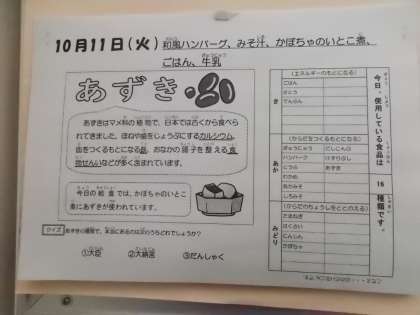 10月11日(火) 和風ハンバーグ、みそ汁、かぼちゃのいとこ煮、
ごはん、牛乳
あずき
あずきはマメ科の植物で、日本では古くから食べら
れてきました。ほねや歯をじょうぶにするカルシウム、
血をつくるもとになる鉄、おなかの調子を整える食
物せんいなどが多く含まれています。
今日の給食では、かぼちゃのいとこ
煮にあずきが使われています。
クイズ
あずきの種類で、本当にあるのは次のうちどれでしょうか?
①大臣 ②大納言 ③だんしゃく
き
(エネルギーのもとになる)
ごはん
さとう
でんぷん
あか
(からだをつくるもとになる)
ぎゅうにゅう
だしこんぶ
ハンバーグ
けずりぶし
とうふ
あずき
わかめ
あかみそ
しろみそ
みどり
(からだのちょうしをととのえる)
たまねぎ
はくさい
にんじん
かぼちゃ
今日、使用している食品は
16
種類です。